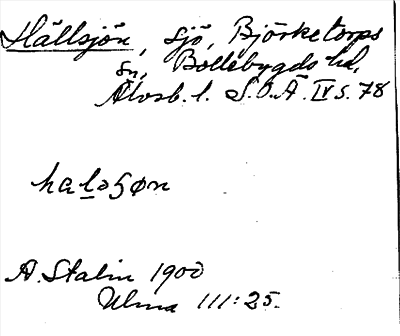 Hällsjön, sjö, Björketorps
sn, Bollebygds hd,
Älvsb. l. S.O.Ä. IV s. 78
haləʂøn
A. Stalin 1900
Ulma 111:25.